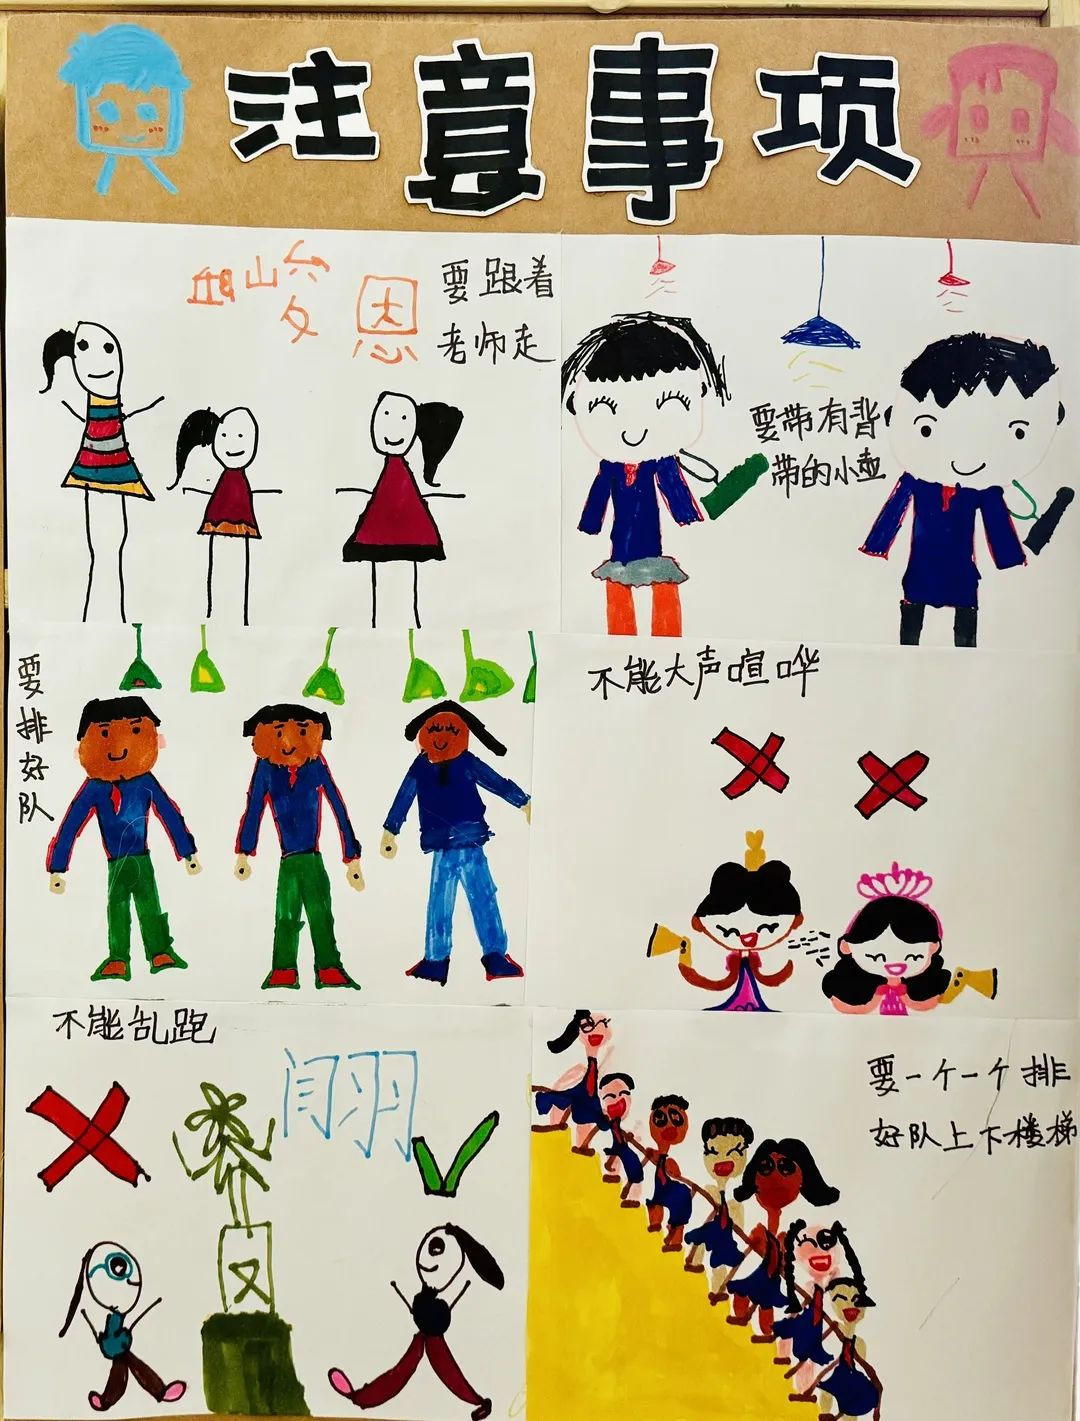 注意事项
恩
要跟着
老师走
要带有背
带的小壶
要
排
好
队
不能大声喧哗
不能乱跑
闫羽
又
要一个一个排
好队上下楼梯